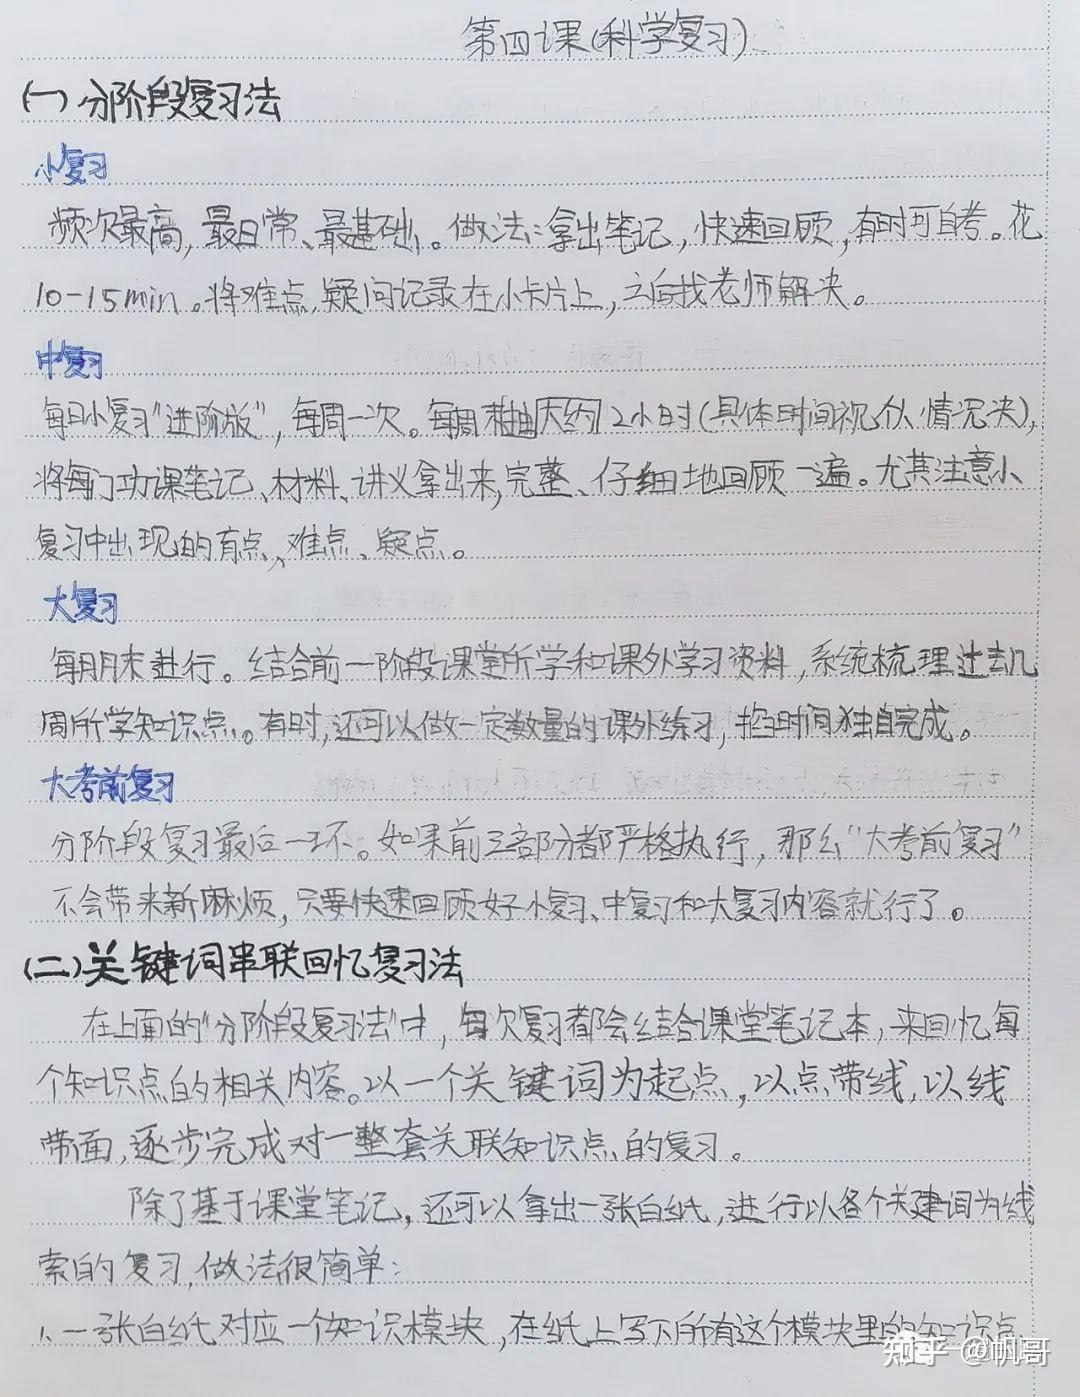 第四课(科学复习)
(一)分阶段复习法
小复习
频次最高,最日常、最基础。做法:拿出笔记,快速回顾,有时可自考。花
10-15min。将难点,疑问记录在小卡片上,之后找老师解决。
中复习
每日小复习“进阶版”,每周一次。每周抽大约2小时(具体时间视个人情况决),
将每门功课笔记、材料、讲义拿出来,完整、仔细地回顾一遍。尤其注意小
复习中出现的盲点,难点、疑点。
大复习
每月月末进行。结合前一阶段课堂所学和课外学习资料,系统梳理过去几
周所学知识点。有时,还可以做一定数量的课外练习,掐时间独自完成。
大考前复习
分阶段复习最后一环。如果前三部分都严格执行,那么“大考前复习”
不会带来新麻烦,只要快速回顾好小复习、中复习和大复习内容就行了。
(二)关键词串联回忆复习法
在上面的“分阶段复习法”中,每次复习都会结合课堂笔记本,来回忆每
个知识点的相关内容。以一个关键词为起点,以点带线,以线
带面,逐步完成对一整套关联知识点的复习。
除了基于课堂笔记,还可以拿出一张白纸,进行以各个关建词为线
索的复习,做法很简单:
1、一张白纸对应一个知识模块,在纸上写下所有这个模块里的知识点
知乎 @帆哥